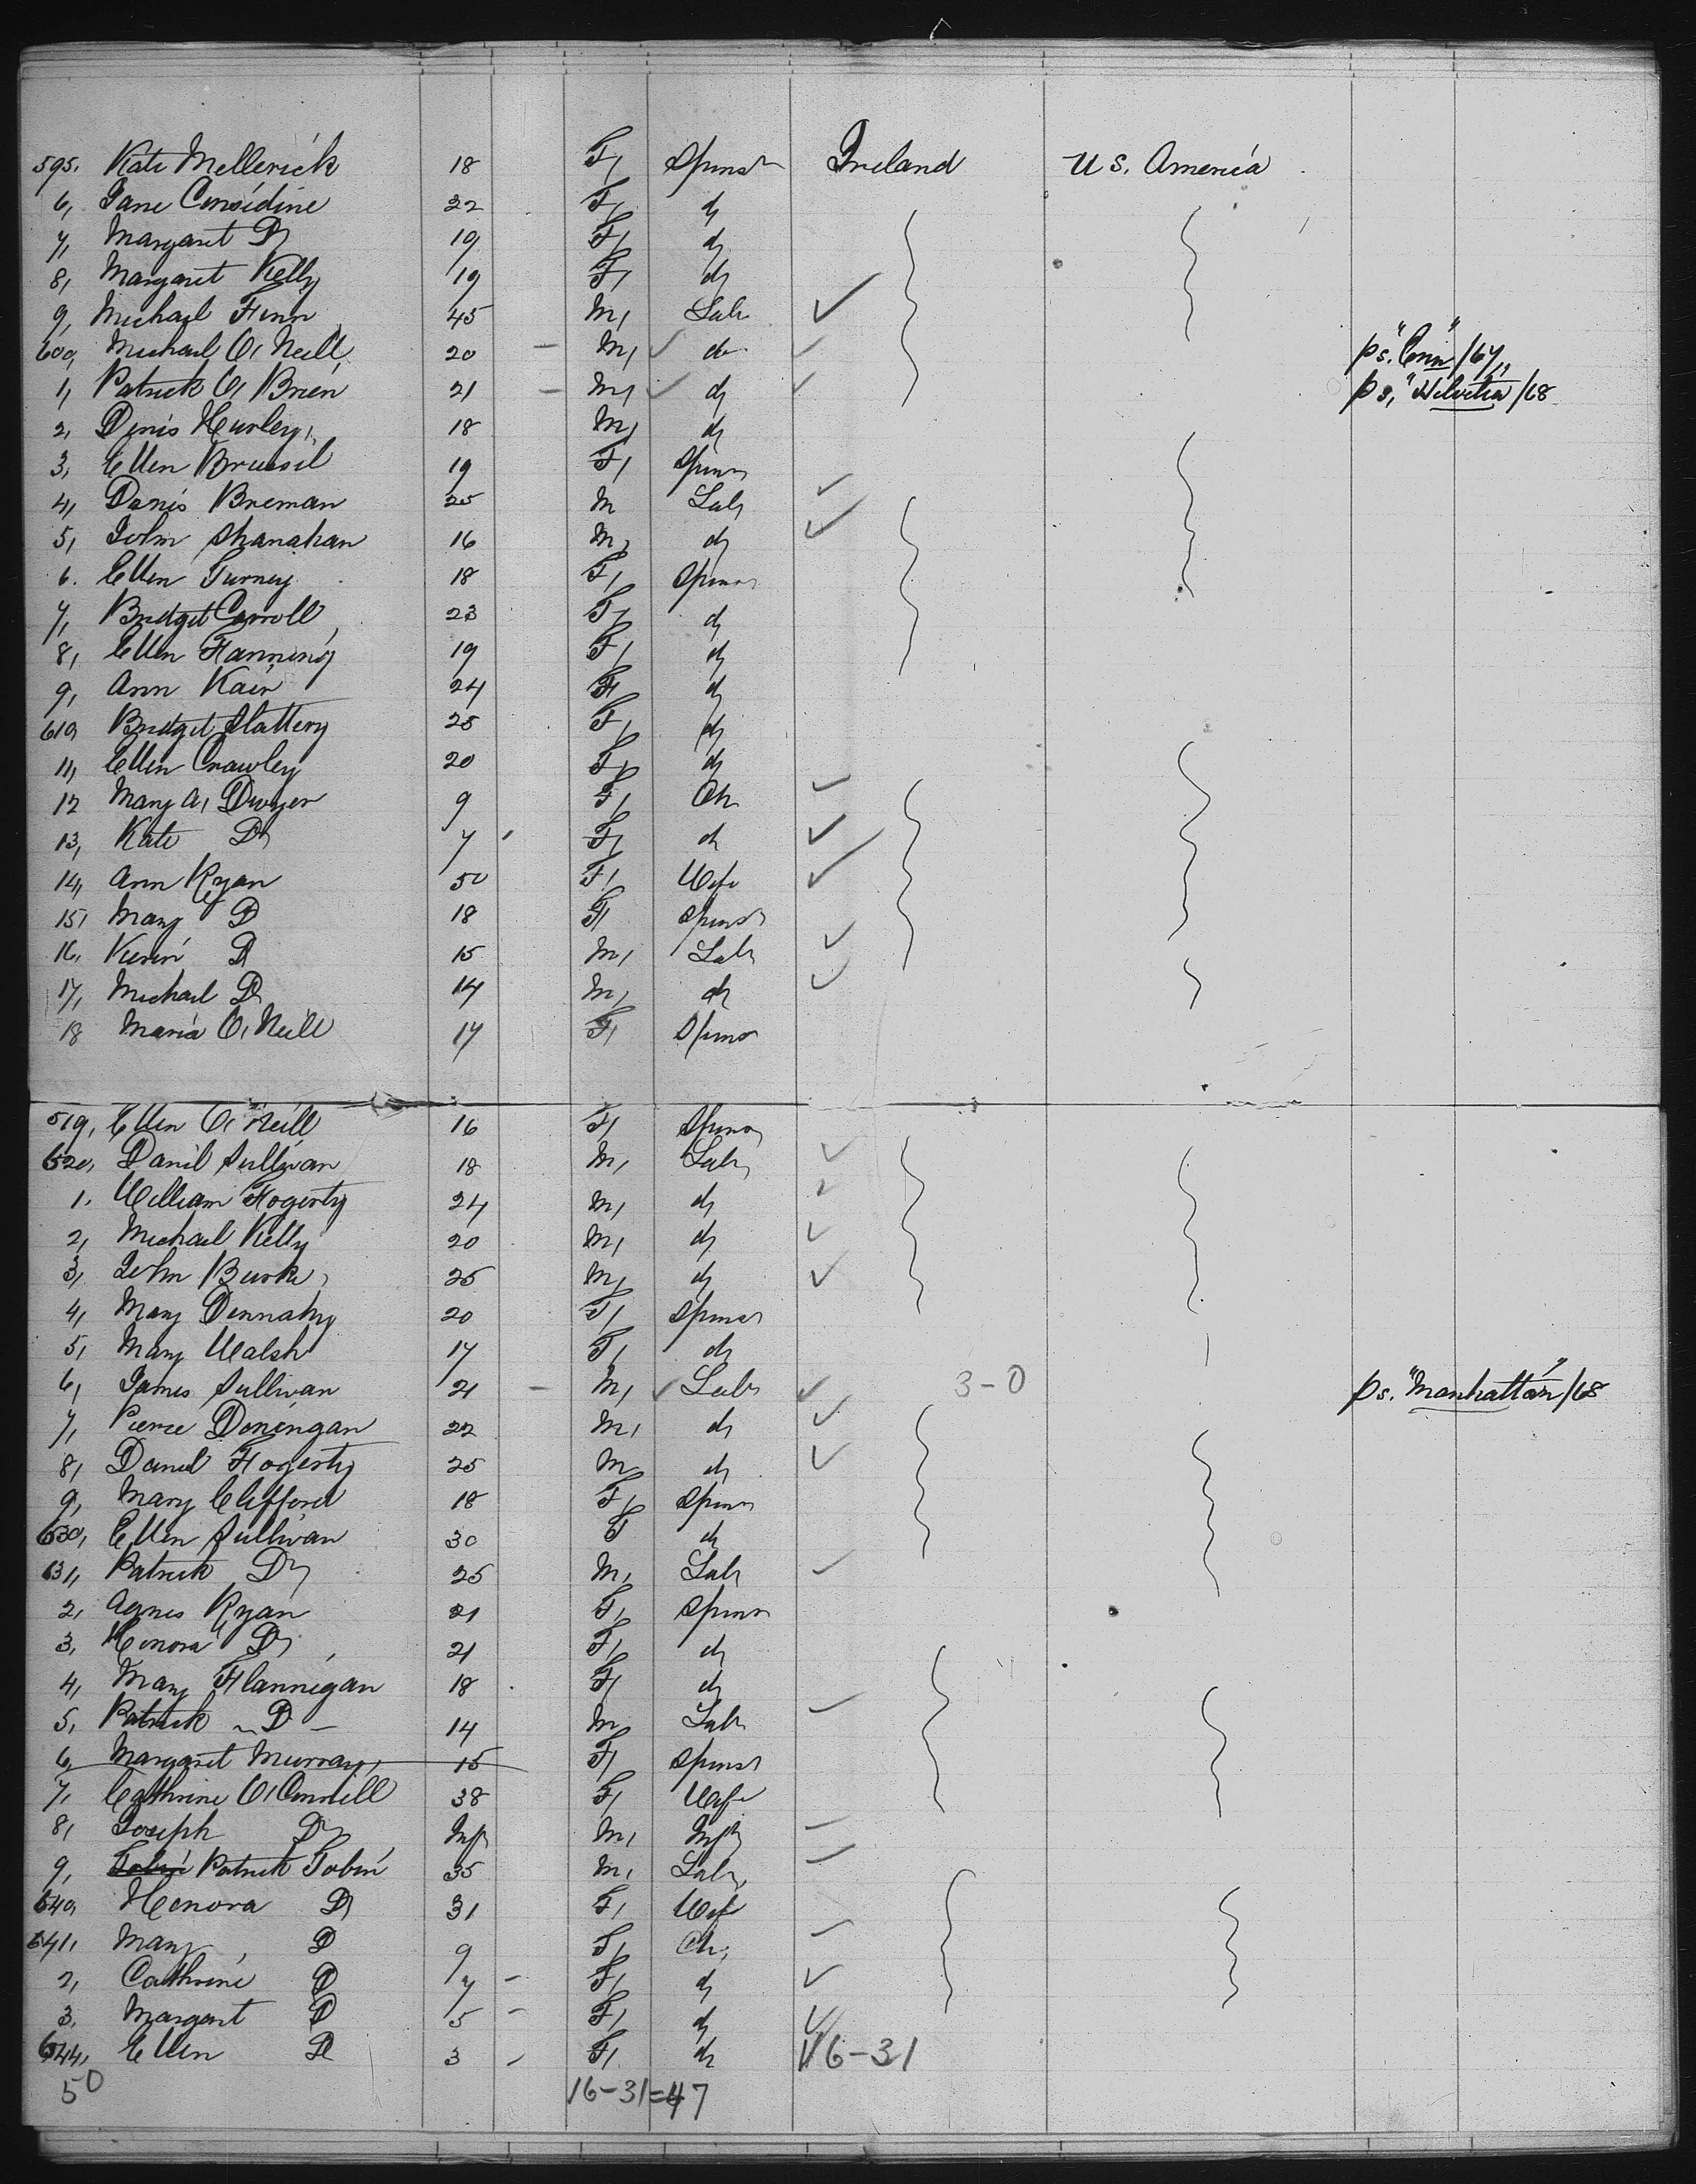 595, Kate Mellerick 18 F, Spinst Ireland U S. America
6, Jane Considine 22 F, d
7, Margaret D 19 F, d
8, Margaret Kelly 19 F, d
9, Michael Finn 45 M, Labr ✓
600, Michael O'Neill 20 – M, ✓ do ✓ ps. "Erin"/67,
1, Patrick O'Brien 21 – M, ✓ d ✓ ps, "Helvetia"/68
2, Denis Hurley, 18 M, d
3, Ellen 19 F, Spins
4, Denis Breman 25 M Labr ✓
5, John Shanahan 16 M, d ✓
6. Ellen 18 F, Spins
7, Bridget Carroll 23 F, d
8, Ellen Fanning 19 F, d
9, Ann Kain 24 F d
610, Bridget Slattery 25 F, d
11, Ellen Crawley 20 F, d
12 Mary A, Dwyer 9 F, Ch ✓
13, Kate D 7 F, d ✓
14, Ann Ryan 50 F, Wife ✓
15, Mary D 18 F Spinst
16, D 15 M, Labr ✓
17, Michael D 14 M, d ✓
18 Maria O'Neill 17 F, Spins
519, Ellen O'Neill 16 F, Spins
620, Danil Sullivan 18 M, Labr ✓
1. William Fogerty 24 M, d ✓
2, Michael Kelly 20 M, d ✓
3, John Burke 25 M, d ✓
4, Mary Dennahy 20 F, Spinst
5, Mary Walsh 17 F, d
6, James Sullivan 21 – M, ✓ Labr ✓ 3-0 ps. "Manhattan"/68
7, Pierce Donengan 22 M, d ✓
8, Daniel Fogerty 25 M, d ✓
9, Mary Clifford 18 F, Spins
630, Ellen Sullivan 30 F d
631, Patrick D 25 M, Labr ✓
2, Agnes Ryan 21 F, Spins
3, Honora D 21 F, d
4, Mary Flannigan 18 F, d
5, Patrick – D – 14 M, Labr
6, Margaret Murray, 15 F, Spinst
7, Cathrine O'Connell 38 F, Wife
8, Joseph D Inft M, Inft
9, Tobin Patrick Tobin 35 M, Labr,
640, Honora D 31 F, Wife
641, Mary D 9 F, Ch,
2, Cathrine D 7 – F, d ✓
3, Margaret D 5 – F, d ✓
644, Ellen D 3 – F, d ✓ 16-31
50 16-31=47